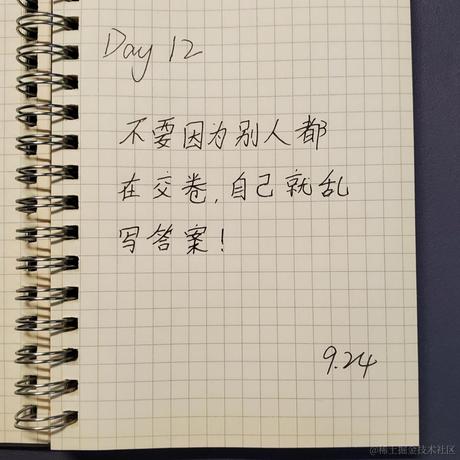 Day 12
不要因为别人都
在交卷,自己就乱
写答案!
9.24
@稀土掘金技术社区